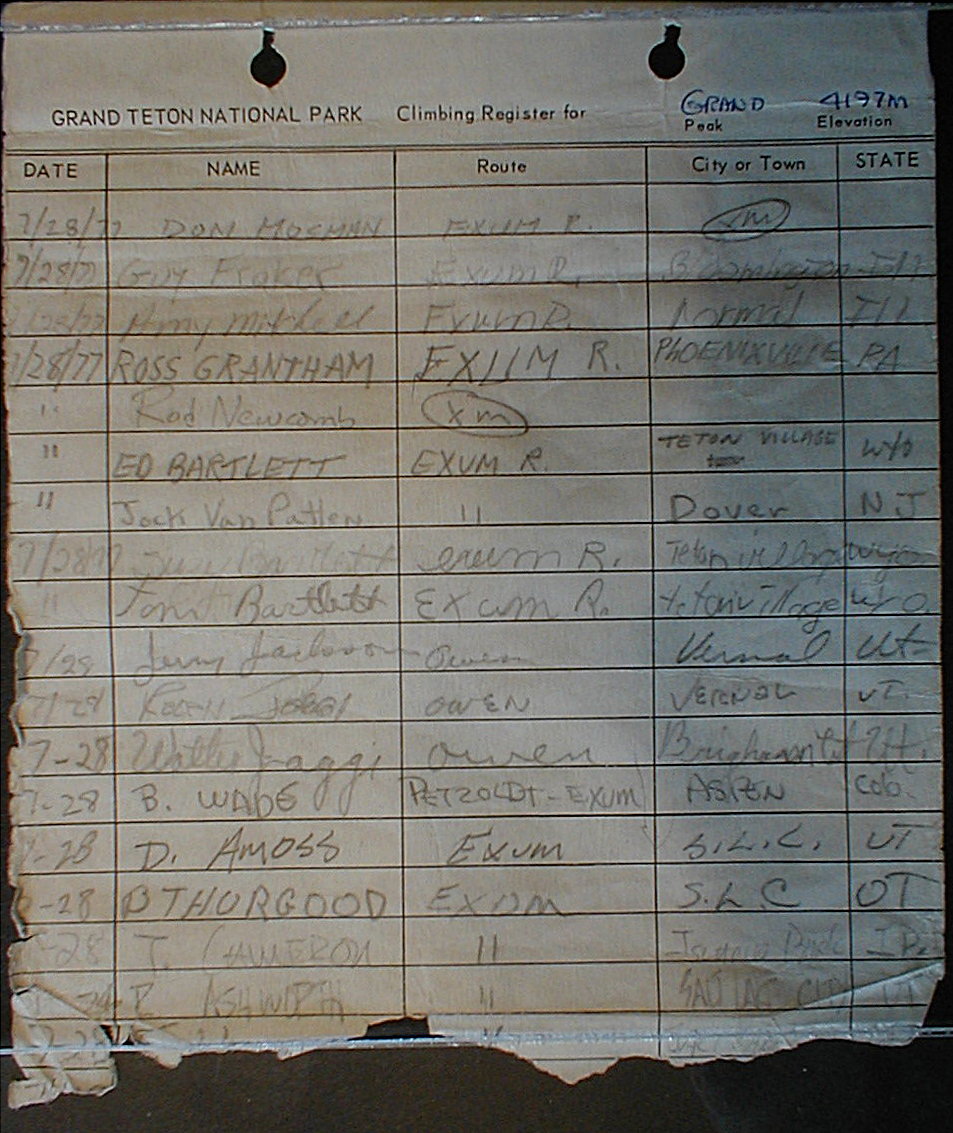 GRAND TETON NATIONAL PARK Climbing Register for GRAND 4197M
Peak Elevation
DATE NAME Route City or Town STATE
7/28/77 DON MOCMAN EXUM R. XM
7/28/77 Guy Fraker Exum R. Bloomington Ill
7/28/77 Amy Mitchell Exum R. Normal Ill
7/28/77 ROSS GRANTHAM EXUM R. PHOENIXVILLE PA
" Rod Newcomb XM
" ED BARTLETT EXUM R. TETON VILLAGE WYO
" Jock Van Patten " Dover NJ
7/28/77 Bartlett exum R. Teton Village Wyo
" Bartlett Exum R. teton village wyo.
7/28 Jerry Owen Vernal Ut
7/28 OWEN VERNAL UT.
7-28 Jaggi Owen Brigham City Ut.
7-28 B. WADE PETZOLDT-EXUM ASPEN Colo.
7-28 D. AMOSS EXUM S.L.C. UT
7-28 THURGOOD EXUM S.L.C UT
7-28 T. CAMERON "
ASHWORTH " SAC CITY
7-28